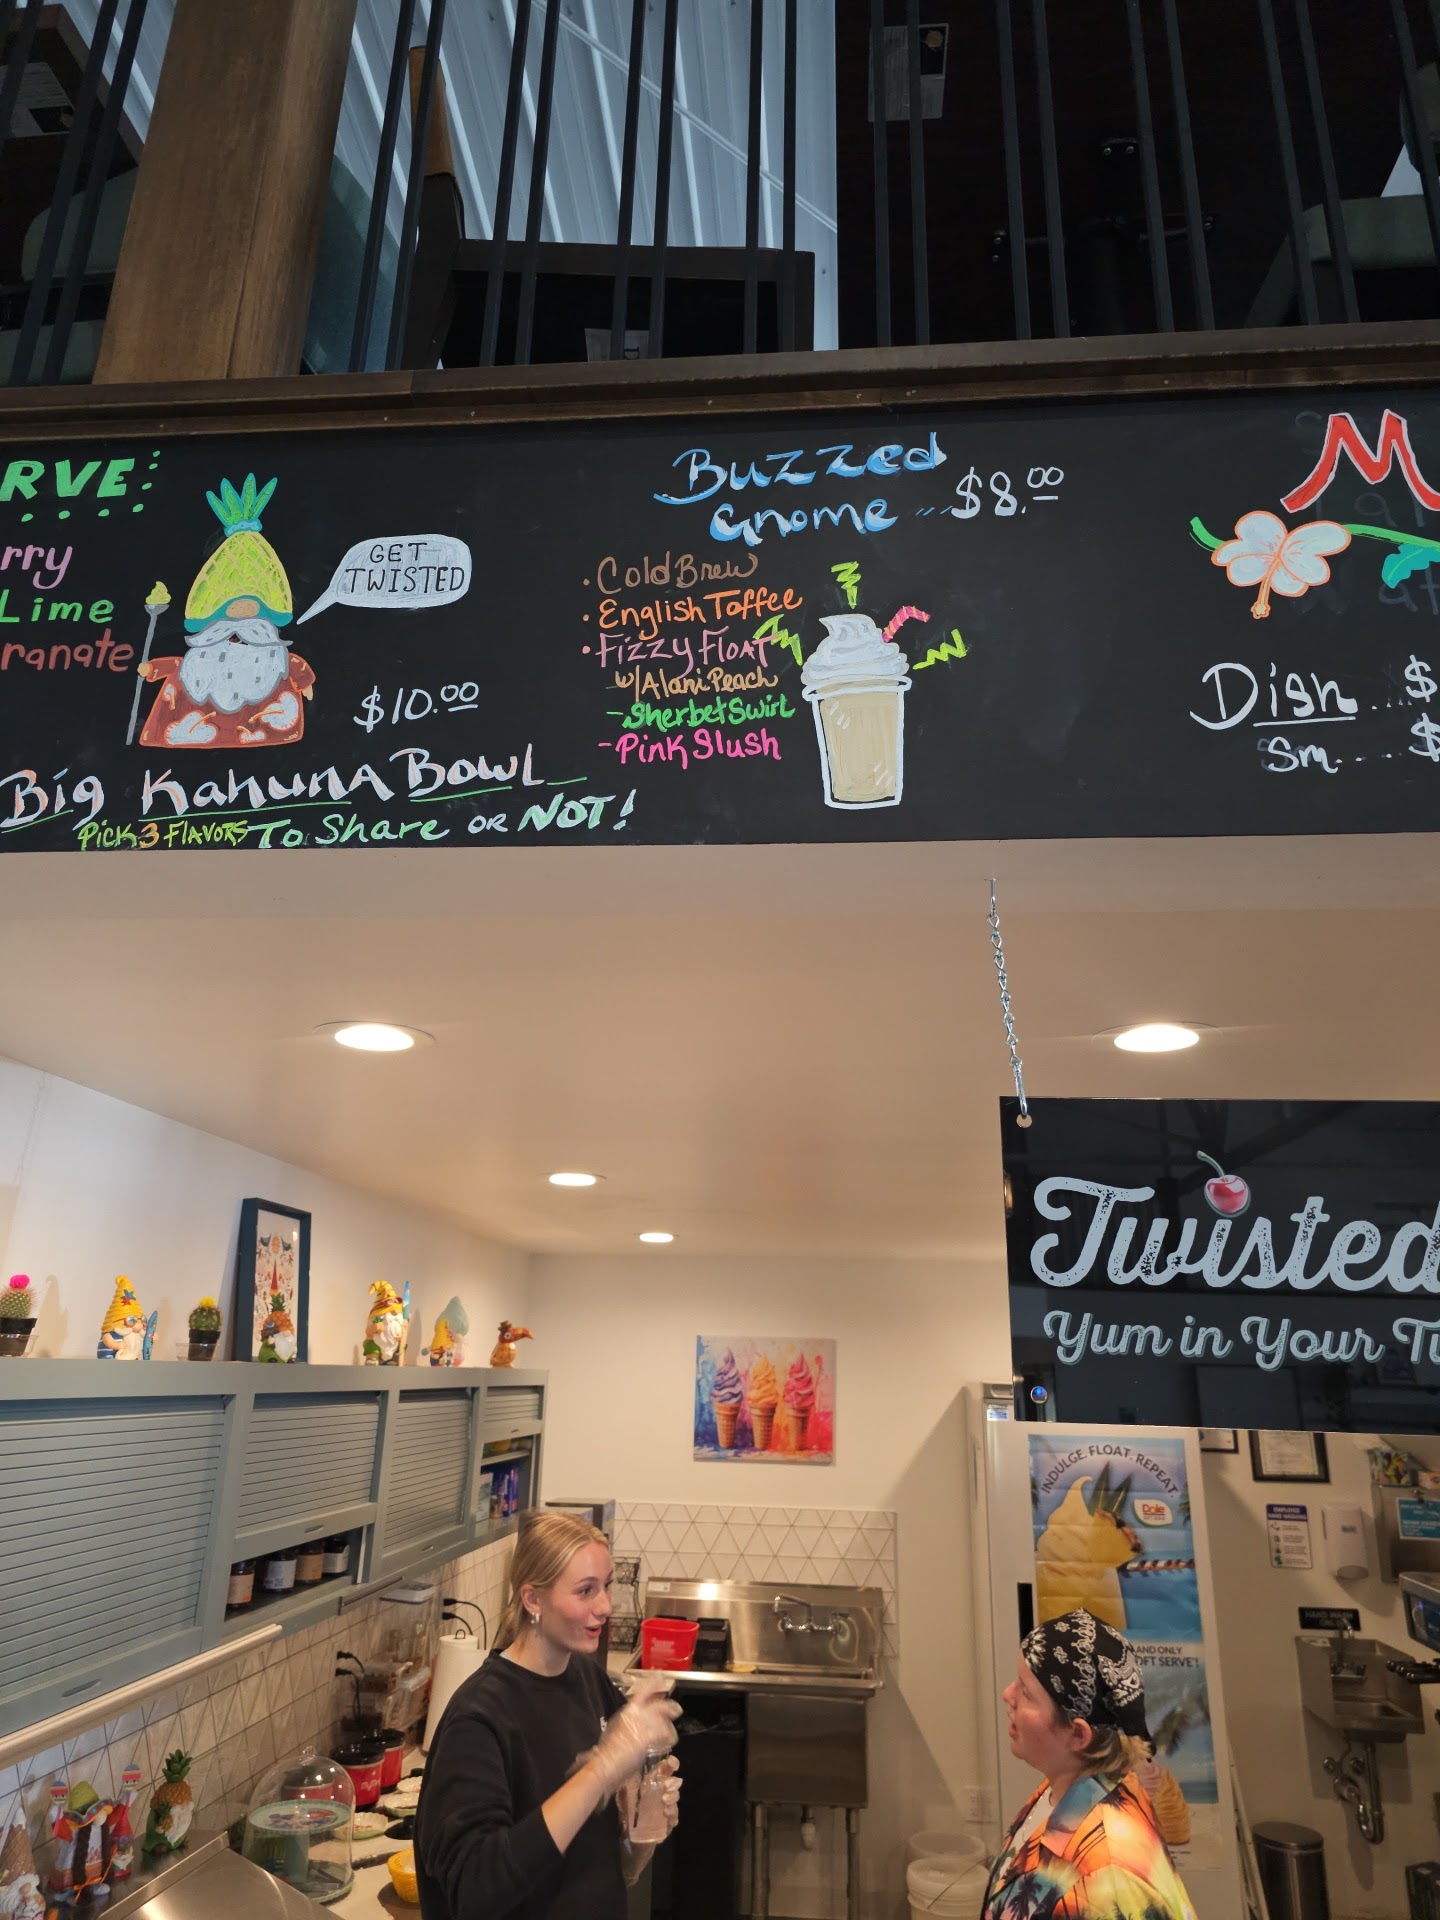 RVE
rry
Lime
ranate
GET
TWISTED
$10.00
Big Kahuna Bowl
Pick 3 Flavors To Share or NOT!
Buzzed
Gnome ... $8.00
• Cold Brew
• English Toffee
• Fizzy Float
w/Alani Peach
- Sherbet Swirl
- Pink Slush
M
Dish .... $
Sm. ... $
Twisted
Yum in Your T
INDULGE. FLOAT. REPEAT.
Dole
AND ONLY
OFT SERVE!